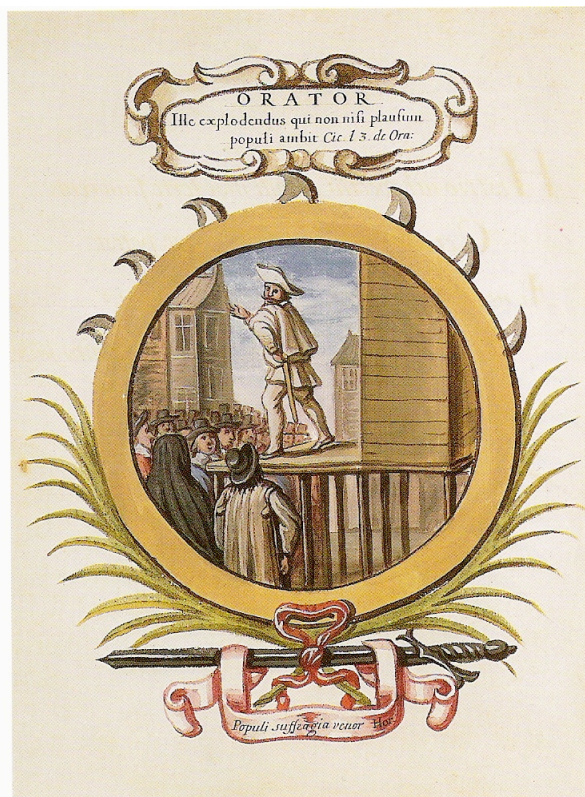 ORATOR
Ille explodendus qui non nisi plausum
populi ambit Cic. l 3. de Ora:
Populi suffragia venor Hor.